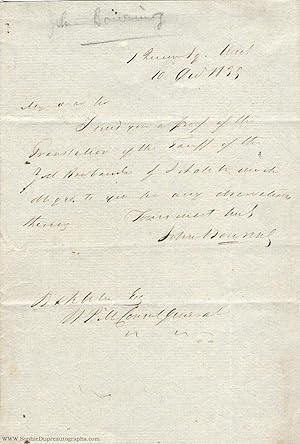 John Bowring
1 Queen Sq. West
10 Oct 1839
My dear Sir
I send you a proof of the
Translation of the Tariff of the
&
much
obliged to you for any observations
thereon
Yours most truly
John Bowring
Esq
Consul General
www.SophieDupreautographs.com